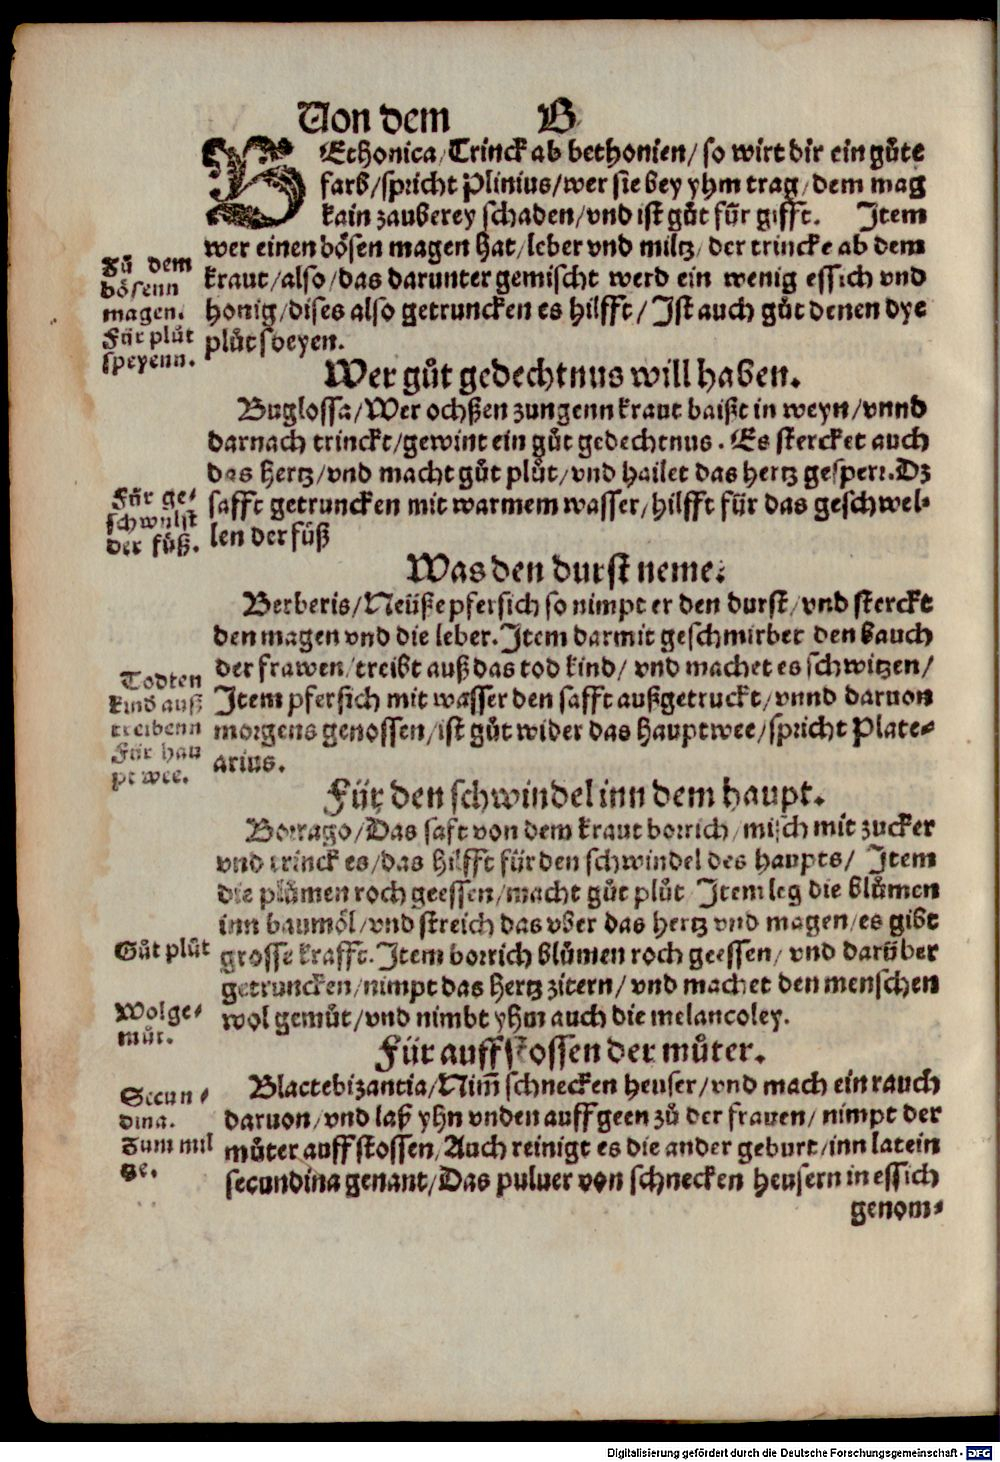 Von dem B
BEthonica/Trinck ab bethonien/ so wirt dir ein gůte
farb/spricht Plinius/wer sie bey yhm trag/dem mag
kain zauberey schaden/vnd ist gůt für gifft. Item
wer einen bösen magen hat/leber vnd miltz/der trincke ab dem
kraut/also/das darunter gemischt werd ein wenig essich vnd
honig/dises also getruncken es hilfft/ Ist auch gůt denen dye
plůt speyen.
Zů dem
bösenn
magen.
Für plůt
speyenn.
Wer gůt gedechtnus will haben.
Buglossa/Wer ochßen zungenn kraut baißt in weyn/vnnd
darnach trinckt/gewint ein gůt gedechtnus. Es stercket auch
das hertz/vnd macht gůt plůt/vnd hailet das hertz gesperr. Dz
safft getruncken mit warmem wasser/hilfft für das geschwel-
len der füß
Für ge-
schwulst
der füß.
Was den durst neme.
Berberis/Neüße pfersich so nimpt er den durst/vnd sterckt
den magen vnd die leber. Item darmit geschmirbet den bauch
der frawen/treibt auß das tod kind/ vnd machet es schwitzen/
Item pfersich mit wasser den safft außgetruckt/vnnd daruon
morgens genossen/ist gůt wider das hauptwee/spricht Plate-
arius.
Todten
kind auß
treibenn
Für hau
pt wee.
Für den schwindel inn dem haupt.
Borrago/Das saft von dem kraut borrich/misch mit zucker
vnd trinck es/das hilfft für den schwindel des haupts/ Item
die plůmen roch geessen/macht gůt plůt Item leg die blůmen
inn baumöl/vnd streich das vber das hertz vnd magen/es gibt
grosse krafft. Item borrich blůmen roch geessen/ vnd darüber
getruncken/nimpt das hertz zitern/ vnd machet den menschen
wol gemůt/vnd nimbt yhm auch die melancoley.
Gůt plůt
Wolge-
můt.
Für auffstossen der můter.
Blactebizantia/Nim̃ schnecken heuser/vnd mach ein rauch
daruon/vnd laß yhn vnden auff geen zů der frauen/ nimpt der
můter auffstossen/Auch reinigt es die ander geburt/inn latein
secundina genant/Das puluer von schnecken heusern in essich
genom-
Secun-
dina.
Zum mil
tze.
Digitalisierung gefördert durch die Deutsche Forschungsgemeinschaft - DFG